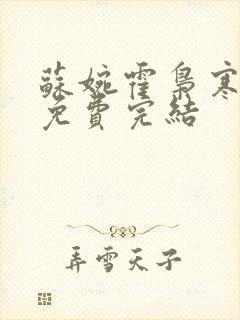 蘇婉霍梟寒
免費完結
弄雪天子